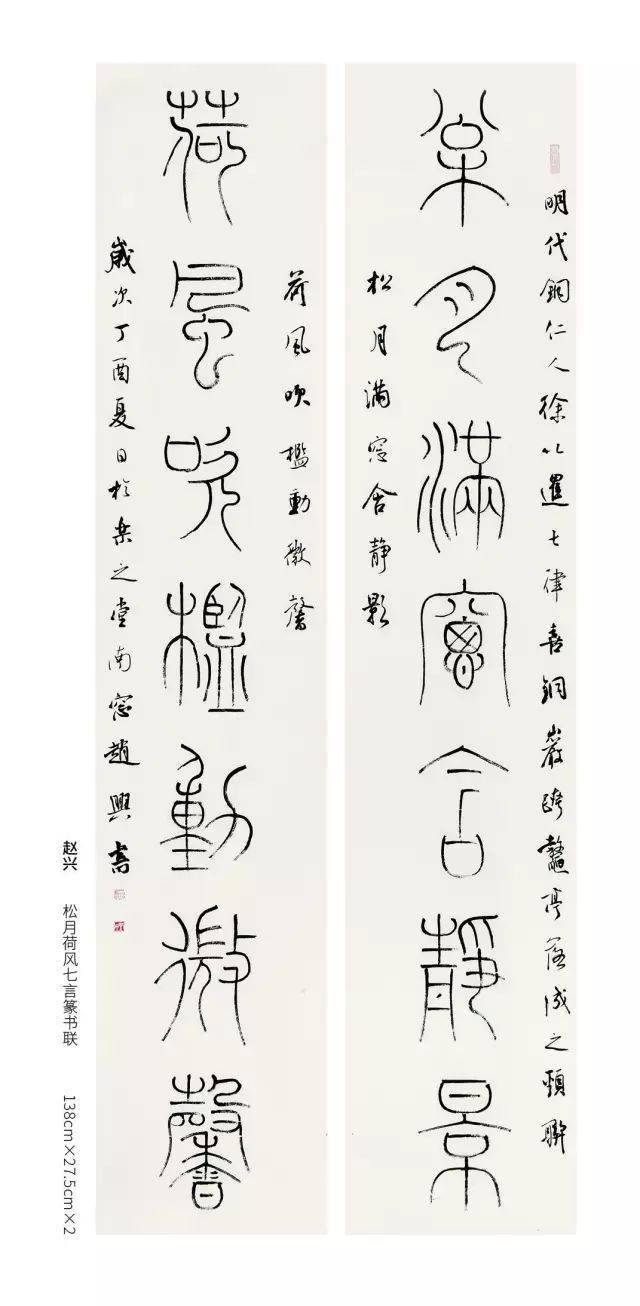 明代銅仁人徐以暹七律喜銅巖跨鰲亭落成之頸聯
枀月滿窗含靜景
松月滿窓含靜影
荷風吹檻動微馨
荷風吹檻動微馨
歲次丁酉夏日於樂之堂南窓趙興書
赵兴 松月荷风七言篆书联 138cm×27.5cm×2